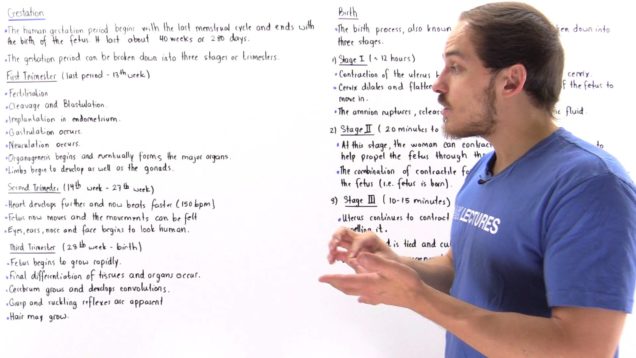 Gestation
The human gestation period begins with the last menstrual cycle and ends with
the birth of the fetus. It last about 40 weeks or 280 days.
The gestation period can be broken down into three stages or trimesters.
First Trimester (last period - 13th week)
Fertilization
Cleavage and Blastulation.
Implantation in endometrium.
Gastrulation occurs.
Neurulation occurs.
Organogenesis begins and eventually forms the major organs.
Limbs begin to develop as well as the gonads.
Second Trimester (14th week - 27th week)
Heart develops further and now beats faster (150 bpm)
Fetus now moves and the movements can be felt
Eyes, ears, nose and face begins to look human.
Third Trimester (28th week - birth)
Fetus begins to grow rapidly.
Final differentiation of tissues and organs occur.
Cerebrum grows and develops convolutions.
Grasp and suckling reflexes are apparent
Hair may grow.
Birth
The birth process, also down into
three stages.
1) Stage I (~ 12 hours)
Contraction of the uterus cervix.
Cervix dilates and of the fetus to
move in.
The amnion ruptures, fluid.
2) Stage II (20 minutes to
At this stage, the woman can to
help propel the fetus through
The combination of contractile
the fetus (i.e. fetus is born).
3) Stage III (10-15 minutes)
Uterus continues to contract
it.
is tied and
LECTURES